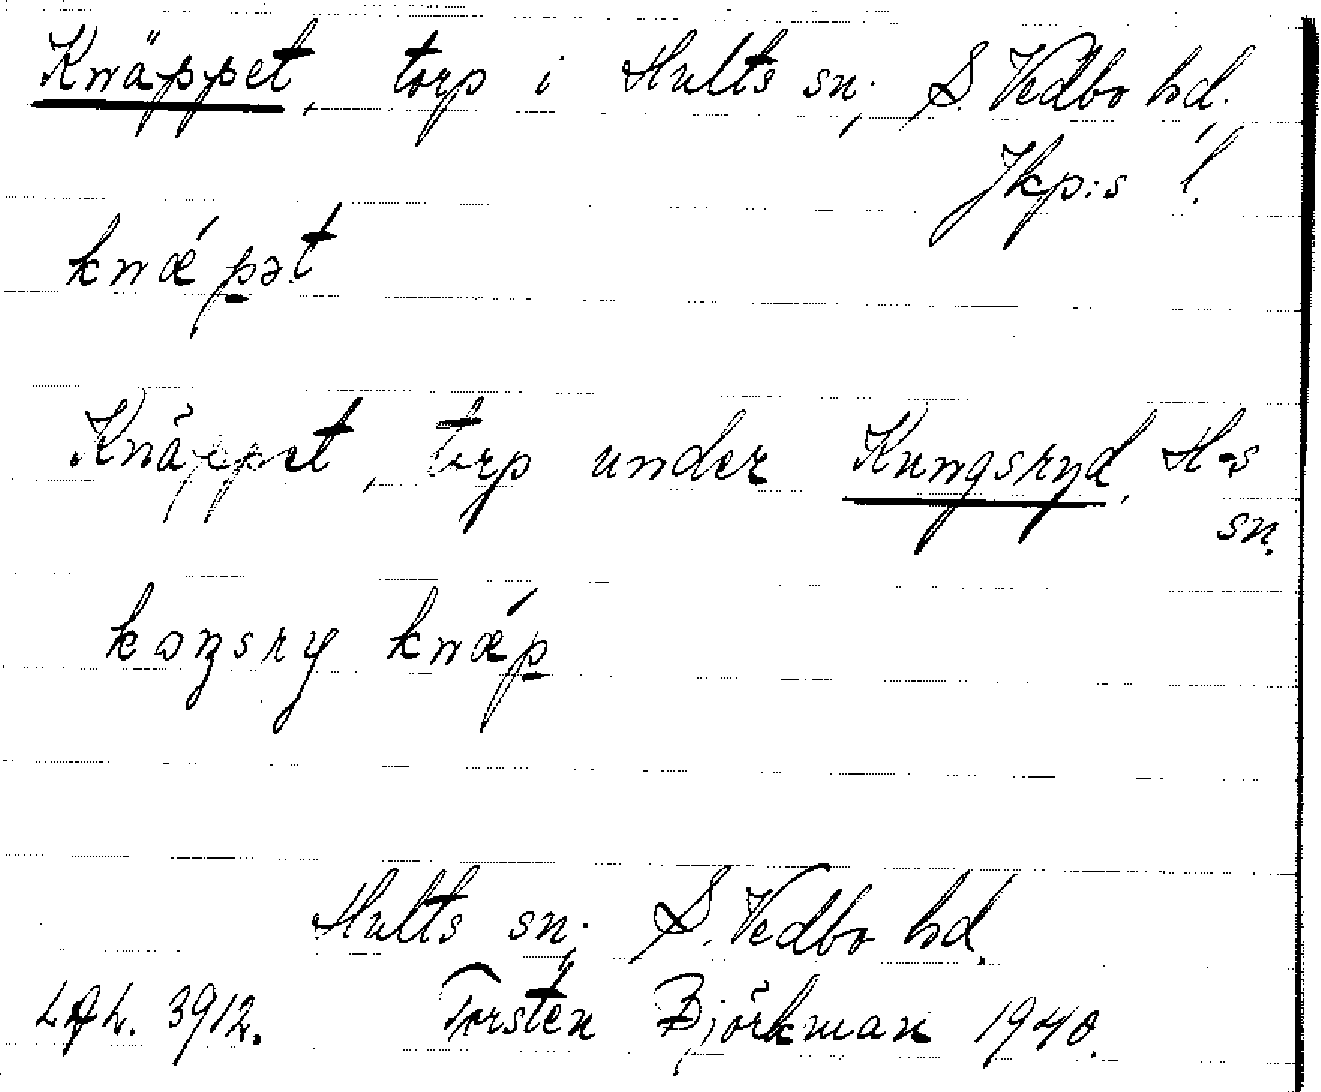 Knäppet, torp i Hults sn, S. Vedbo hd,
Jkp:s l.
knǽpət
Knäppet, torp under Kungsryd, H-s
sn.
koŋsry knǽp
Hults sn, S. Vedbo hd.
LAL. 3912. Torsten Björkman 1940.